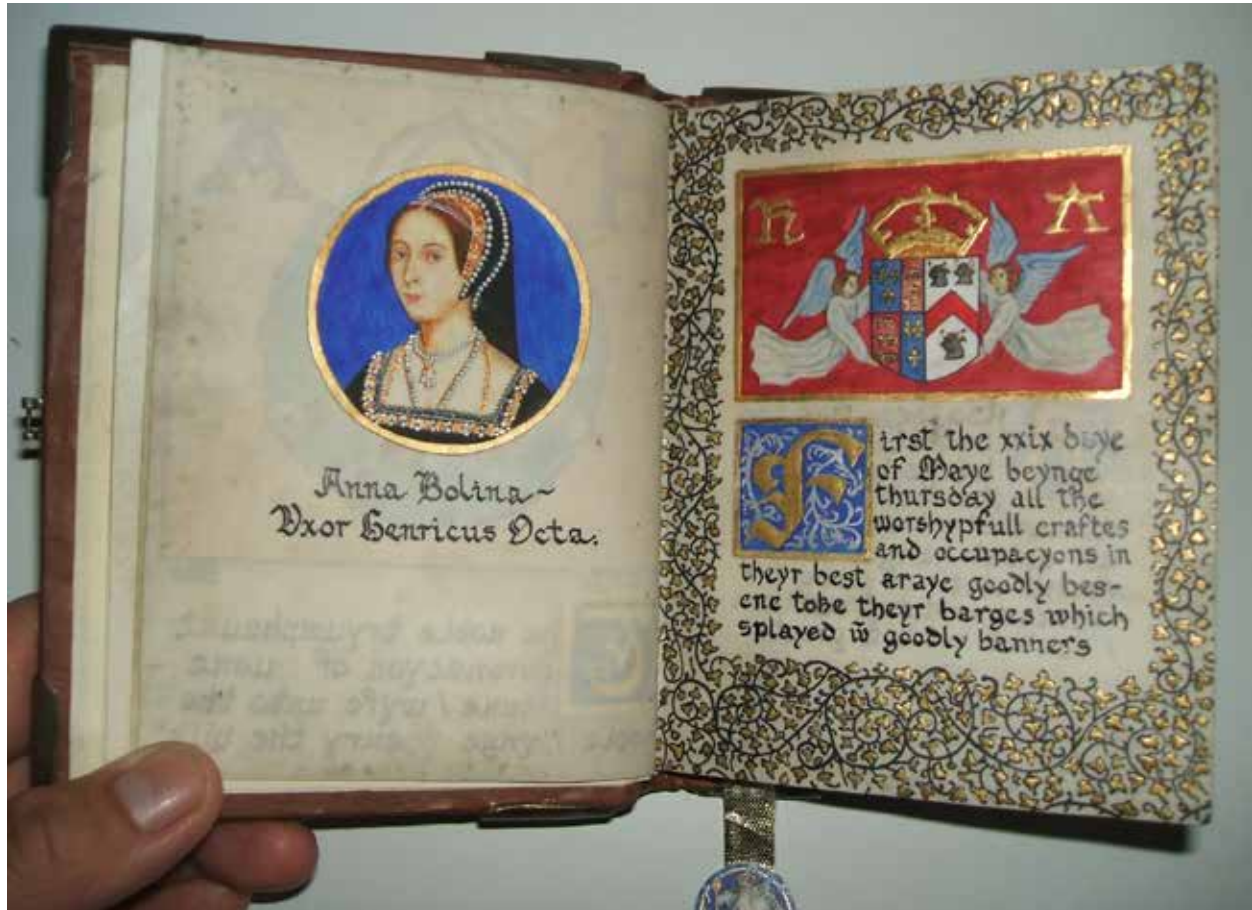 Anna Bolina~
Uxor Henricus Octa.
H A
First the xxix daye
of Maye beynge
thursday all the
worshypfull craftes
and occupacyons in
theyr best araye goodly bes-
ene tobe theyr barges which
splayed w̄ goodly banners